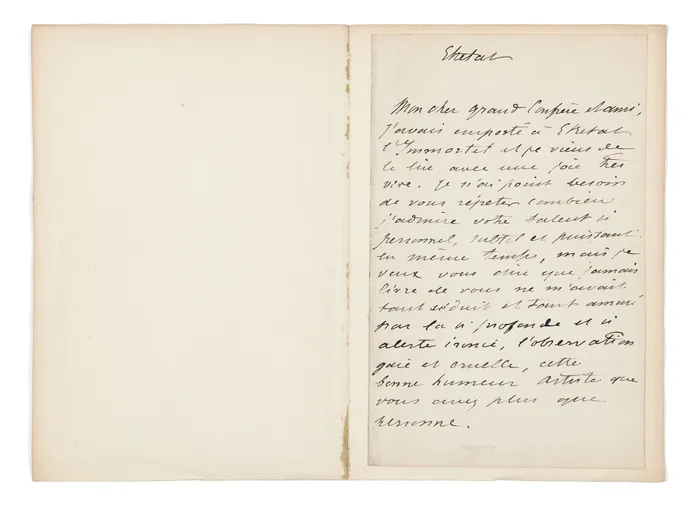 Etretat
Mon cher grand Confrère et ami,
j'avais emporté à Etretat
l'Immortel et je viens de
le lire avec une joie très
vive. Je n'ai point besoin
de vous répéter combien
j'admire votre talent si
personnel, subtil et puissant
en même temps, mais je
veux vous dire que jamais
livre de vous ne m'avait
tant séduit et tant amusé
par la si profonde et si
alerte ironie, l'observation
gaie et cruelle, cette
bonne humeur artiste que
vous avez plus que
personne.